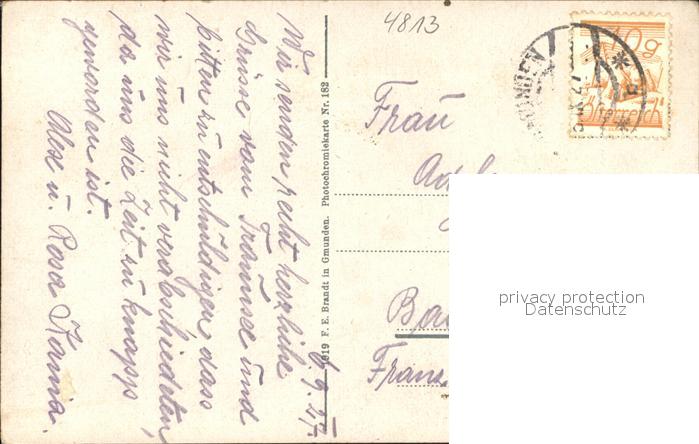 4813
10g
Österreich
GMUNDEN
Frau
Bad
Frans
privacy protection
Datenschutz
1919 F. E. Brandt in Gmunden. Photochromiekarte Nr. 182
6.9.27
Wir senden recht herzliche
Grüsse vom Traunsee und
bitten zu entschuldigen dass
wir uns nicht verabschiedeten,
da uns die Zeit zu knapp
geworden ist.
u. Rosa